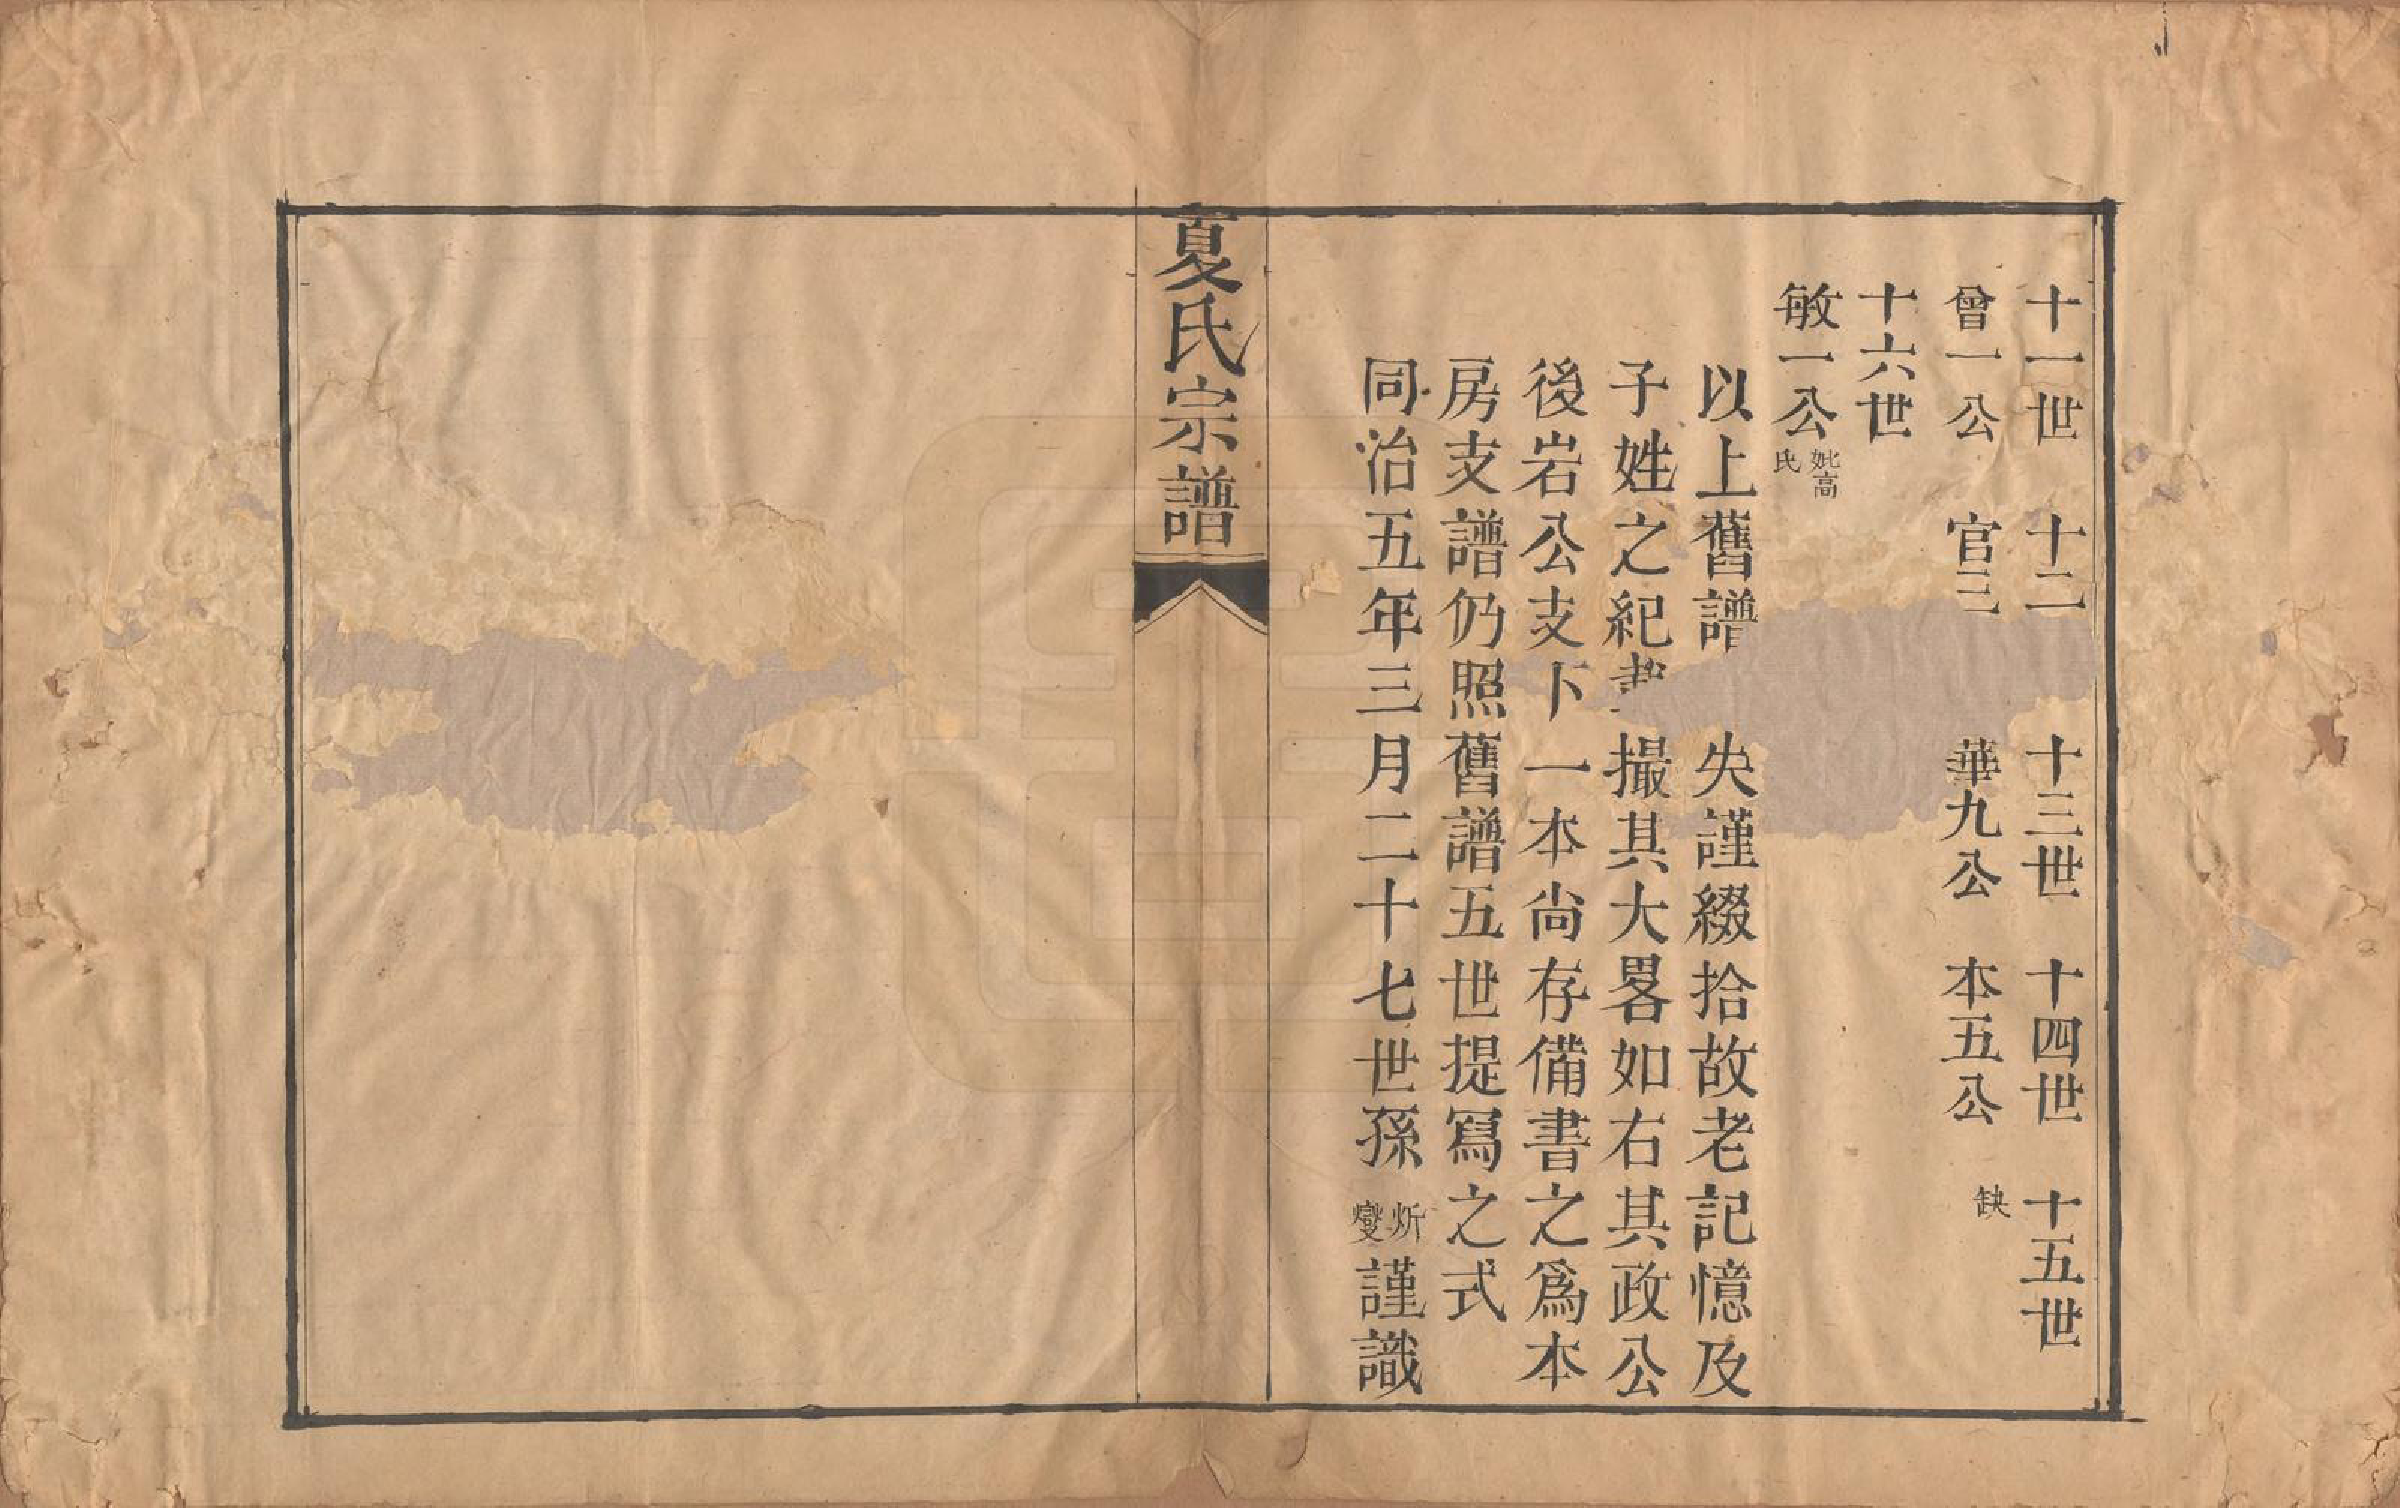 十一世 十二 十三世 十四世 十五世
曾一公 官三 華九公 本五公 缺
十六世
敏一公 妣高氏
以上舊譜 失謹綴拾故老記憶及
子姓之紀 撮其大畧如右其政公
後岩公支下一本尙存備書之爲本
房支譜仍照舊譜五世提寫之式
同治五年三月二十七世孫 炘燮 謹識
夏氏宗譜